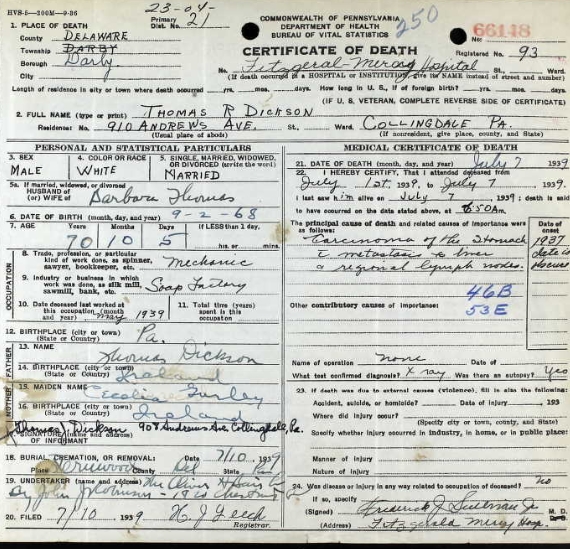 HVS-5-200M-9-36
23-04-
Primary
Dist. No. 21
COMMONWEALTH OF PENNSYLVANIA
DEPARTMENT OF HEALTH
BUREAU OF VITAL STATISTICS
250
No. 66148
Registered No. 93
1. PLACE OF DEATH
County DELAWARE
Township DARBY
Borough Darby
City
CERTIFICATE OF DEATH
No. Fitzgerald-Mercy Hospital St., Ward.
(If death occurred in a HOSPITAL or INSTITUTION, give its NAME instead of street and number)
Length of residence in city or town where death occurred yrs. mos. days. How long in U. S., if of foreign birth? yrs. mos. days.
(IF U. S. VETERAN, COMPLETE REVERSE SIDE OF CERTIFICATE)
2. FULL NAME (type or print) THOMAS R DICKSON
Residence: No. 910 ANDREWS AVE. St., Ward. COLLINGDALE PA.
(Usual place of abode) (If nonresident, give place, county, and State)
PERSONAL AND STATISTICAL PARTICULARS
3. SEX
MALE
4. COLOR OR RACE
WHITE
5. SINGLE, MARRIED, WIDOWED,
OR DIVORCED (write the word)
MARRIED
5a. If married, widowed, or divorced
HUSBAND of
(or) WIFE of Barbara Thomas
6. DATE OF BIRTH (month, day, and year) 9-2-68
7. AGE Years Months Days If LESS than 1 day,
70 10 5 hrs. or mins.
OCCUPATION
8. Trade, profession, or particular
kind of work done, as spinner,
sawyer, bookkeeper, etc. Mechanic
9. Industry or business in which
work was done, as silk mill,
sawmill, bank, etc. Soap Factory
10. Date deceased last worked at
this occupation (month and
year) May 1939
11. Total time (years)
spent in this
occupation
12. BIRTHPLACE (city or town) Pa.
(State or Country)
FATHER
13. NAME Thomas Dickson
14. BIRTHPLACE (city or town) Ireland
(State or Country)
MOTHER
15. MAIDEN NAME Cecelia Gurley
16. BIRTHPLACE (city or town) Ireland
(State or Country)
17. Thomas Dickson 908 Andrews Ave Collingdale, Pa.
SIGNATURE (name and address)
OF INFORMANT
18. BURIAL, CREMATION, OR REMOVAL: Date 7/10 1939
Place Fernwood County Del State Pa
19. UNDERTAKER (name and address) The Oliver H Bair Co
By John J 1820 Chestnut
20. FILED 7/10 1939 H. J. Leech
Registrar.
MEDICAL CERTIFICATE OF DEATH
21. DATE OF DEATH (month, day, and year) July 7 1939
22. I HEREBY CERTIFY, That I attended deceased from
July 1st, 1939, to July 7, 1939.
I last saw him alive on July 7, 1939; death is said
to have occurred on the date stated above, at 6:50 A m.
The principal cause of death and related causes of importance were
as follows:
Date of
onset
Carcinoma of the Stomach 1937
c metastasis to liver
& regional lymph nodes.
46B
53E
Other contributory causes of importance:
Name of operation none Date of
What test confirmed diagnosis? X ray Was there an autopsy? Yes
23. If death was due to external causes (violence), fill in also the following:
Accident, suicide, or homicide? Date of injury , 193
Where did injury occur?
(Specify city or town, county, and State)
Specify whether injury occurred in industry, in home, or in public place:
Manner of injury
Nature of injury
24. Was disease or injury in any way related to occupation of deceased? No
If so, specify
(Signed) Frederick J Sullivan Jr M. D.
(Address) Fitzgerald Mercy Hosp.